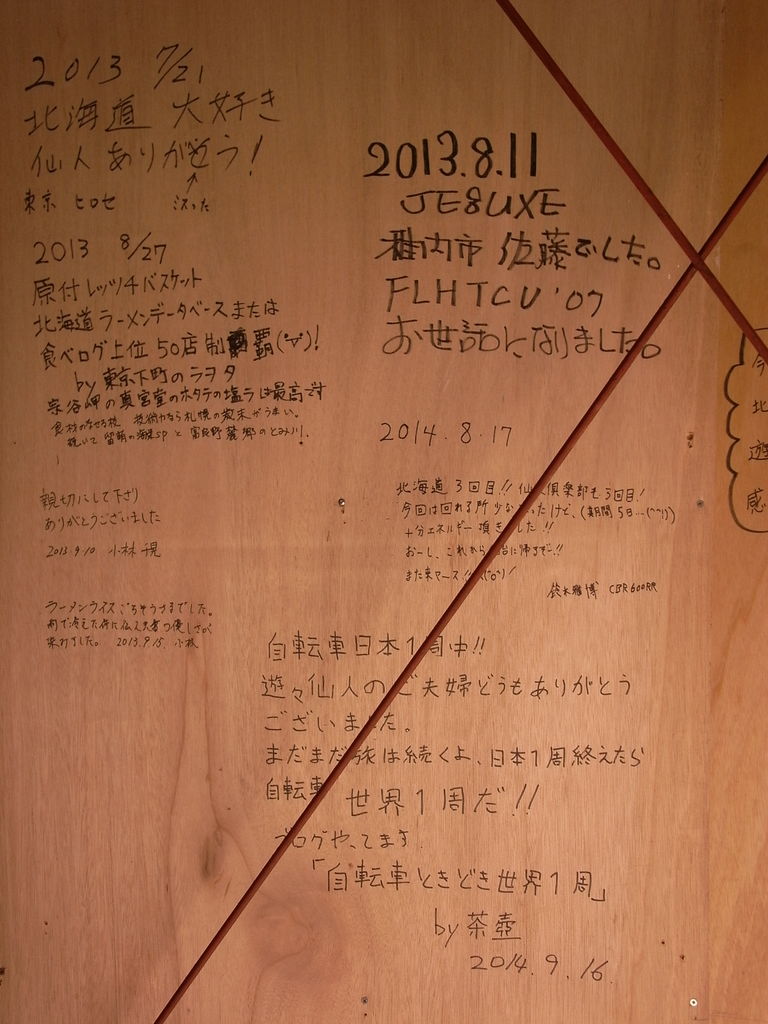 2013 7/21
北海道 大好き
仙人 ありがとう!
東京 ヒロセ
2013 8/27
原付 レッツ4バスケット
北海道 ラーメンデータベースまたは
食べログ上位 50店 制覇(^▽^)!
by 東京下町のラヲタ
宗谷岬の真宮堂のホタテの塩ラは最高です
親切にして下さり
ありがとうございました
2013.9.10 小林
ラーメンライスごちそうさまでした。
2013.9.15. 小林
2013.8.11
JE8UXE
稚内市 佐藤でした。
FLHTCU '07
お世話になりました。
2014.8.17
北海道3回目!! 仙人倶楽部も3回目!
今回は回れる所少なかったけど、(期間5日…(^^))
十分エネルギー頂きました!!
おーし、これから 台に帰るぞー!!
また来マース!! (^o^)/
鈴木雅博 CBR600RR
自転車日本1周中!!
遊々仙人のご夫婦どうもありがとう
ございました。
まだまだ旅は続くよ、日本1周終えたら
自転車 世界1周だ!!
ブログやってます
「自転車ときどき世界1周」
by 茶壺
2014.9.16
今
北
遊
感